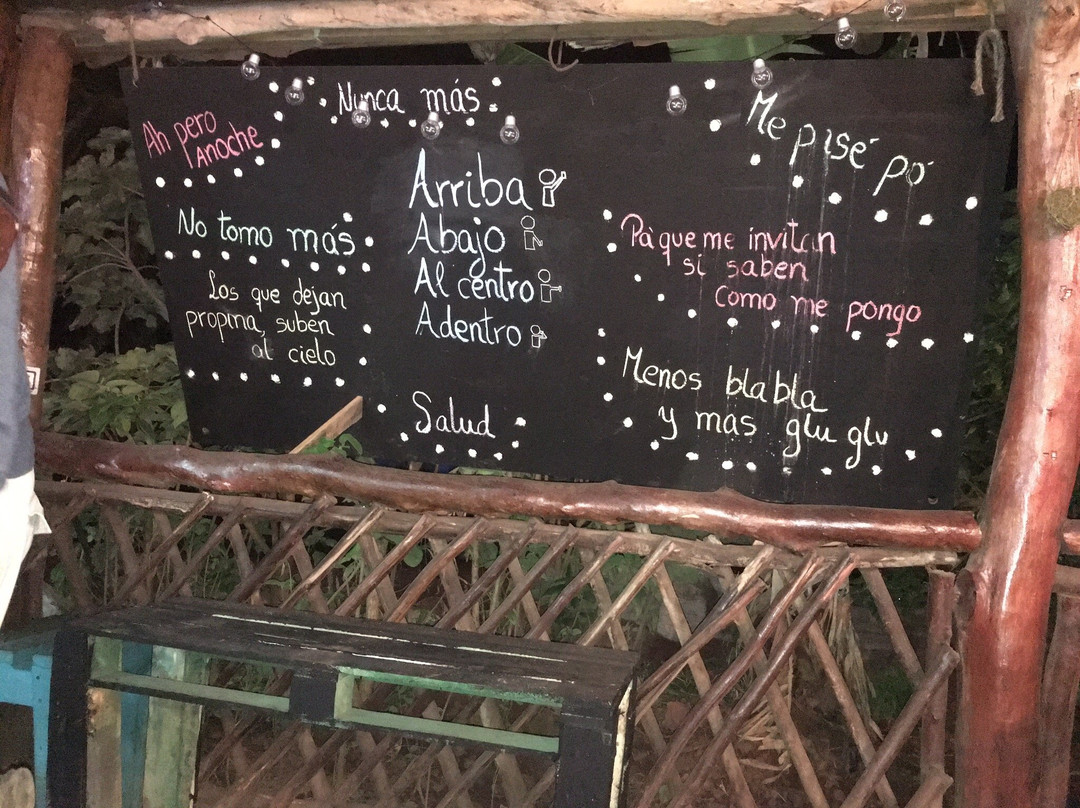 Ah pero
Anoche
No tomo más
Los que dejan
propina, suben
al cielo
Nunca más
Arriba
Abajo
Al centro
Adentro
Salud
Me pisé pó
Pà que me invitan
si saben
como me pongo
Menos bla bla
y mas glu glu